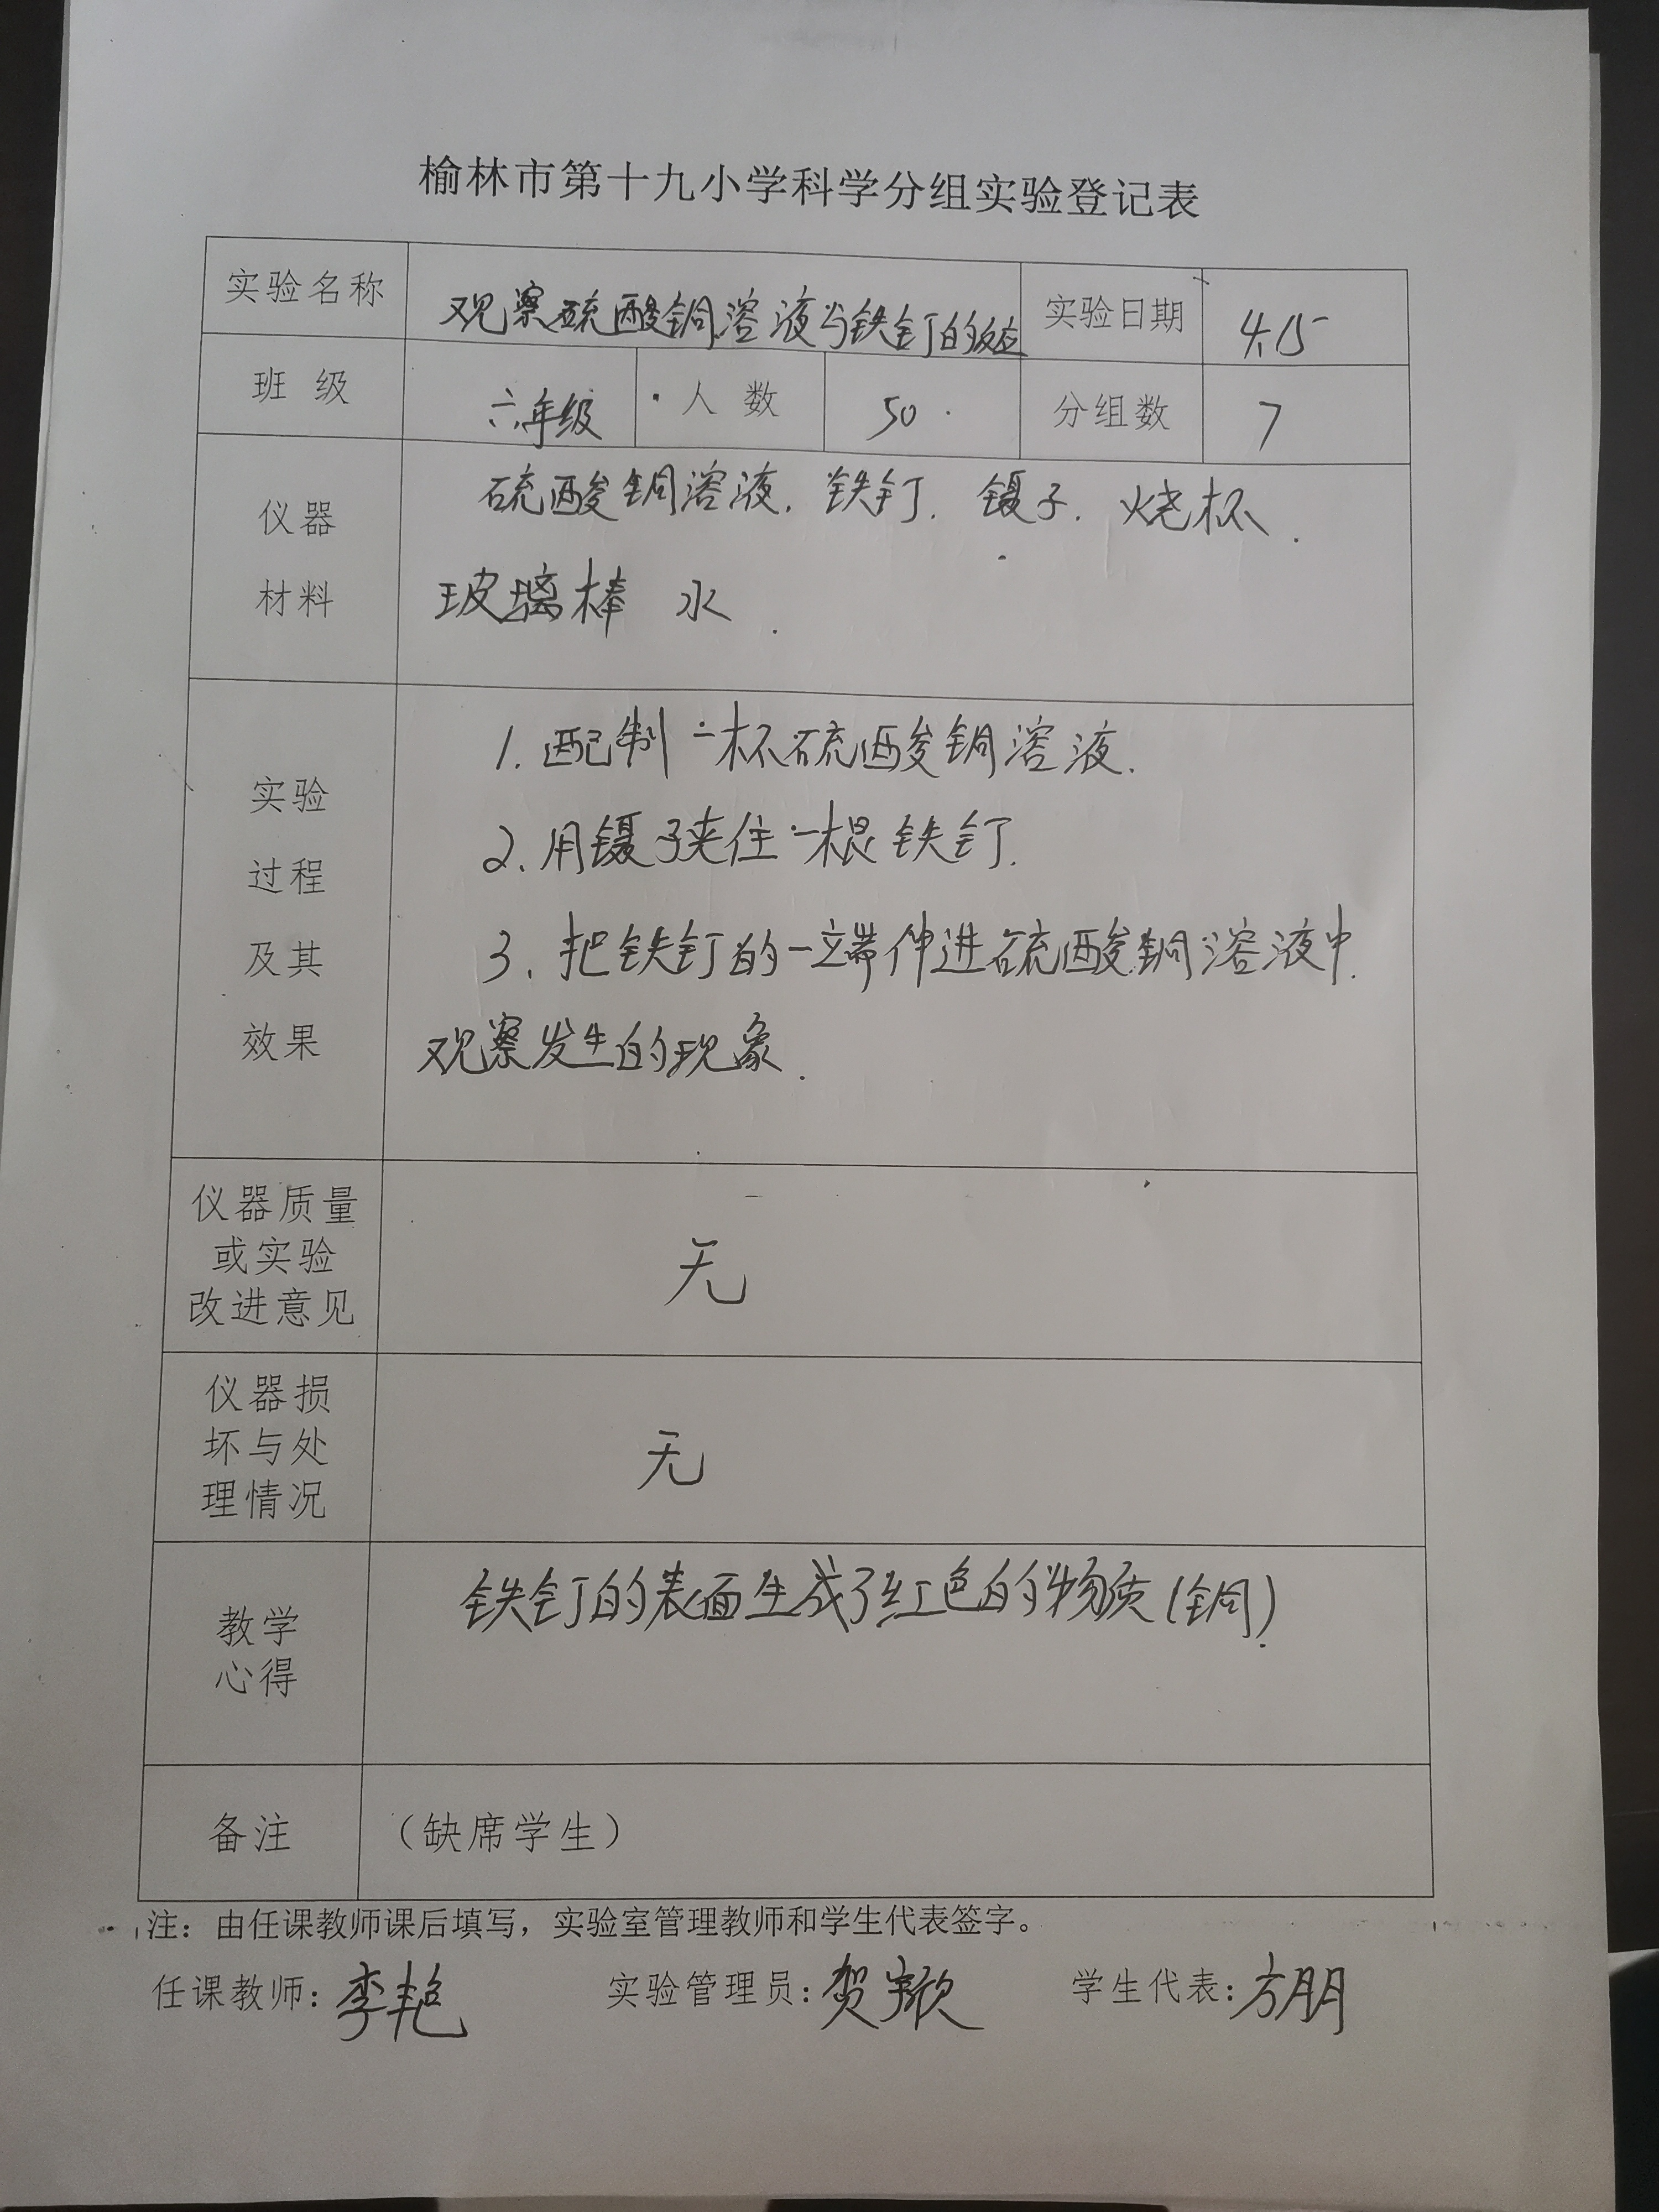 榆林市第十九小学科学分组实验登记表
实验名称 观察硫酸铜溶液与铁钉的反应 实验日期 4.15
班 级 六年级 人 数 50 分组数 7
仪器
材料
硫酸铜溶液. 铁钉. 镊子. 烧杯.
玻璃棒 水.
实验
过程
及其
效果
1. 配制一杯硫酸铜溶液.
2. 用镊子夹住一根铁钉.
3. 把铁钉的一端伸进硫酸铜溶液中.
观察发生的现象.
仪器质量
或实验
改进意见
无
仪器损
坏与处
理情况
无
教学
心得
铁钉的表面生成了红色的物质(铜).
备注 （缺席学生）
注：由任课教师课后填写，实验室管理教师和学生代表签字。
任课教师：李艳 实验管理员：贺 学生代表：方朋